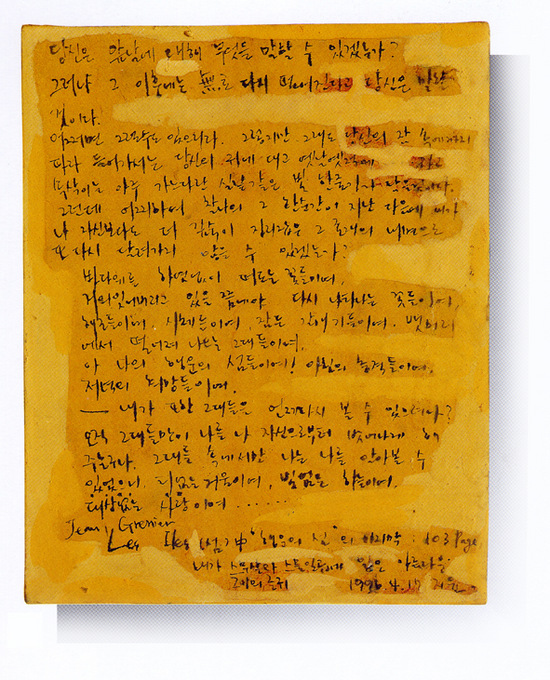 당신은 앞날에 대해 무엇을 말할 수 있겠는가?
그러나 그 이후에는 無로 다시 떨어진다고 당신은 말할
것이다.
어쩌면 그럴수도 있으리라. 그렇지만 그래도 당신의 관 속에까지
따라 들어가서는 당신의 귀에 대고 옛날옛적에 하고
속삭이는 아주 가느다란 실낱 같은 빛 한줄기가 남을
그런데 어찌하여 찰나의 그 한순간이 지난 다음에 내가
나 자신보다도 더 깊숙이 자리잡은 그 존재의 내면으로
또 다시 내려가지 않을 수 있겠는가?
바다에는 하염없이 떠도는 꽃들이여,
거의 잊어버리고 있을 쯤에야 다시 나타나는 꽃들이여,
해조들이여, 시체들이여, 잠든 갈매기들이여, 뱃머리
에서 떨어져 나오는 그대들이여,
아 나의 행운의 섬들이여! 아침의 충격들이여,
저녁의 희망들이여,
— 내가 또한 그대들을 언제 다시 볼 수 있으려나?
오직 그대들만이 나를 나 자신으로부터 벗어나게 해
주는구나. 그대들 속에서만 나는 나를 알아볼 수
있었으니. 티없는 거울이여, 빛없는 하늘이여,
대상없는 사랑이여 ......
Jean, Grenier
Les Iles (섬) 中 "행운의 섬"의 마지막 : 103 Page
내가 읽은 아름다운
1996. 4. 17